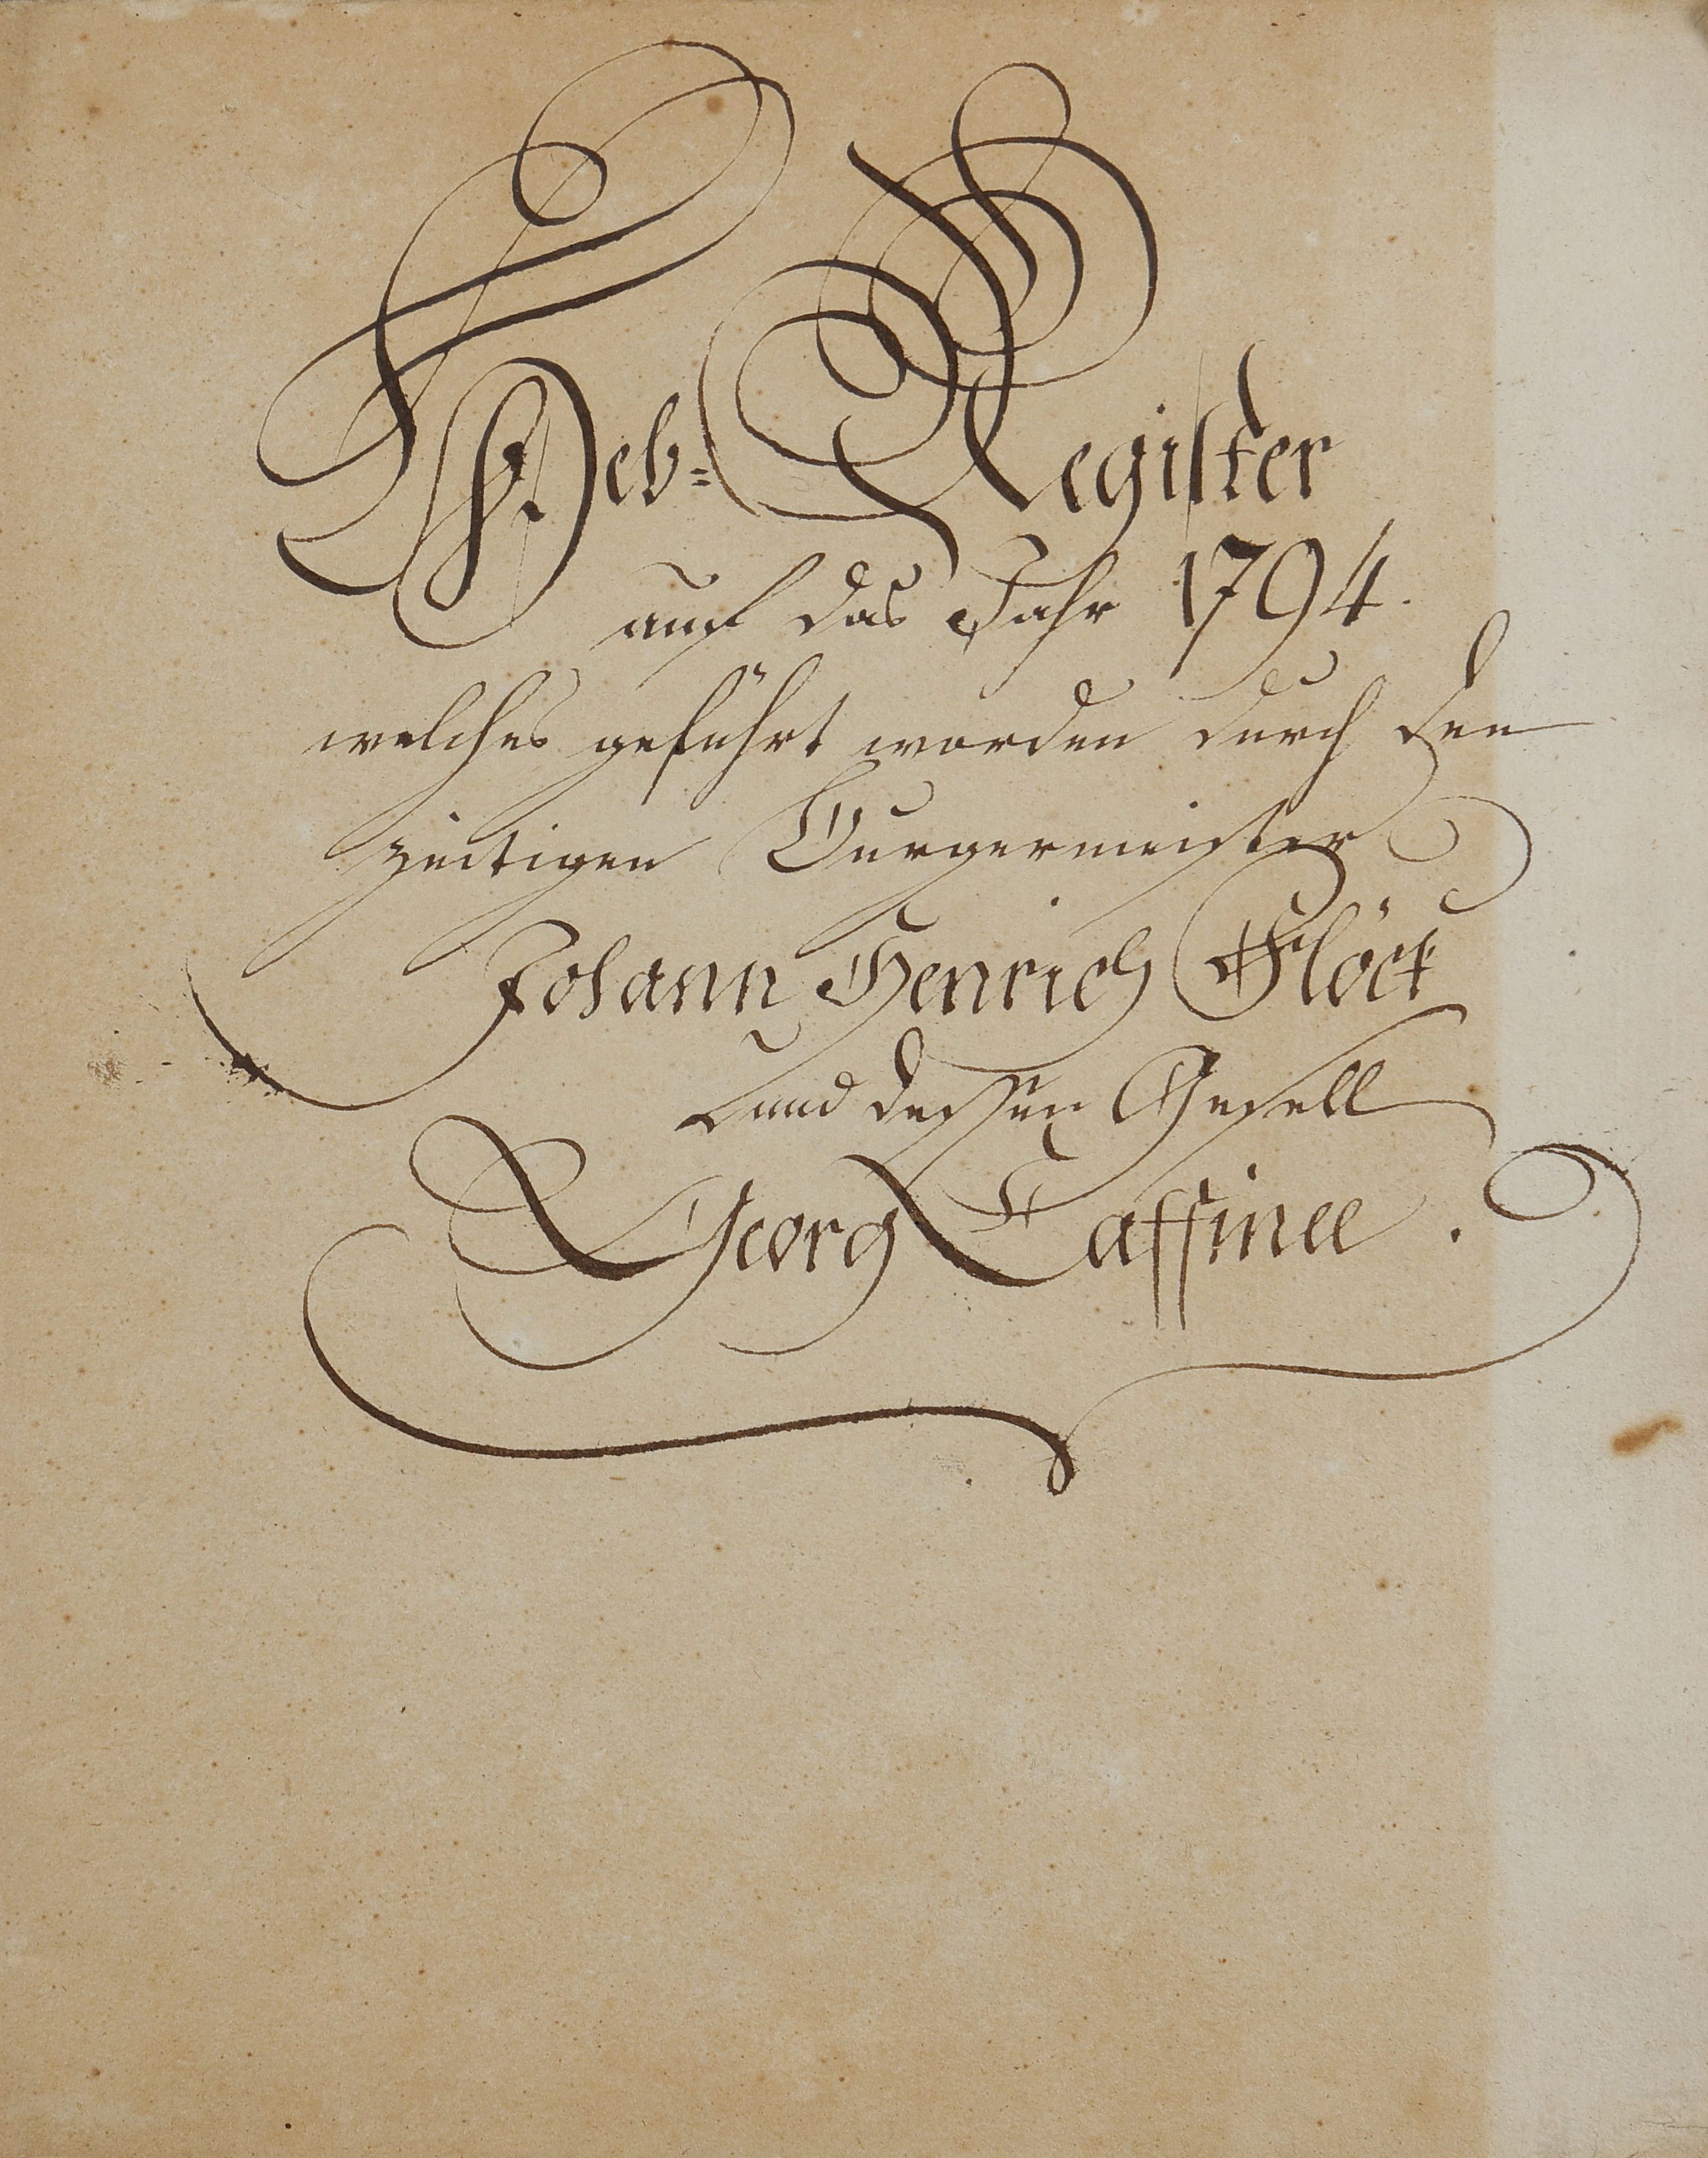 Heb= Register
auf das Jahr 1794.
welches geführt worden durch den
zeitigen Burgermeister
Johann Henrich Flöck
und dessen Gesell
Georg Caffinee.